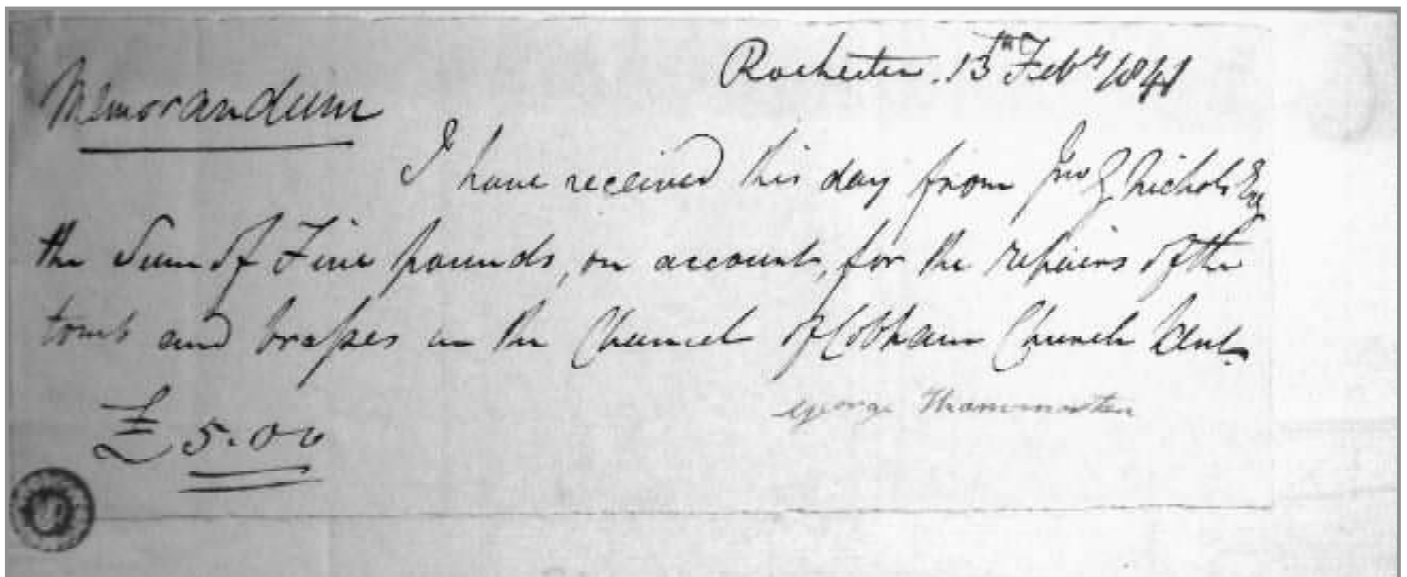 Rochester. 13th Feby 1841
Memorandum
I have received this day from Jno G Nichols Esq
the Sum of Five pounds, on account, for the repairs of the
tomb and brasses in the Chancel of Cobham Church Kent.
George
£5.0.0